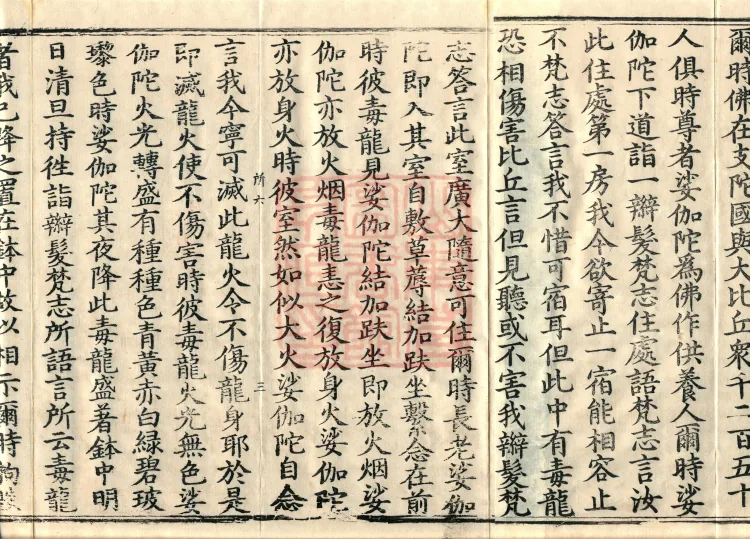 爾時佛在支陀國與大比丘衆千二百五十
人俱時尊者娑伽陀為佛作供養人爾時娑
伽陀下道詣一辮髮梵志住處語梵志言汝
此住處第一房我今欲寄止一宿能相容止
不梵志答言我不惜可宿耳但此中有毒龍
恐相傷害比丘言但見聽或不害我辮髮梵
志答言此室廣大隨意可住爾時長老娑伽
陀即入其室自敷草蓐結加趺坐繫念在前
時彼毒龍見娑伽陀結加趺坐即放火烟娑
伽陀亦放火烟毒龍恚之復放身火娑伽陀
亦放身火時彼室然如似大火娑伽陀自念
所六
三
言我今寧可滅此龍火令不傷龍身耶於是
即滅龍火使不傷害時彼毒龍火光無色娑
伽陀火光轉盛有種種色青黃赤白緑碧玻
瓈色時娑伽陀其夜降此毒龍盛著鉢中明
日清旦持徃詣辮髮梵志所語言所云毒龍
者我已降之置在鉢中故以相示爾時拘睒